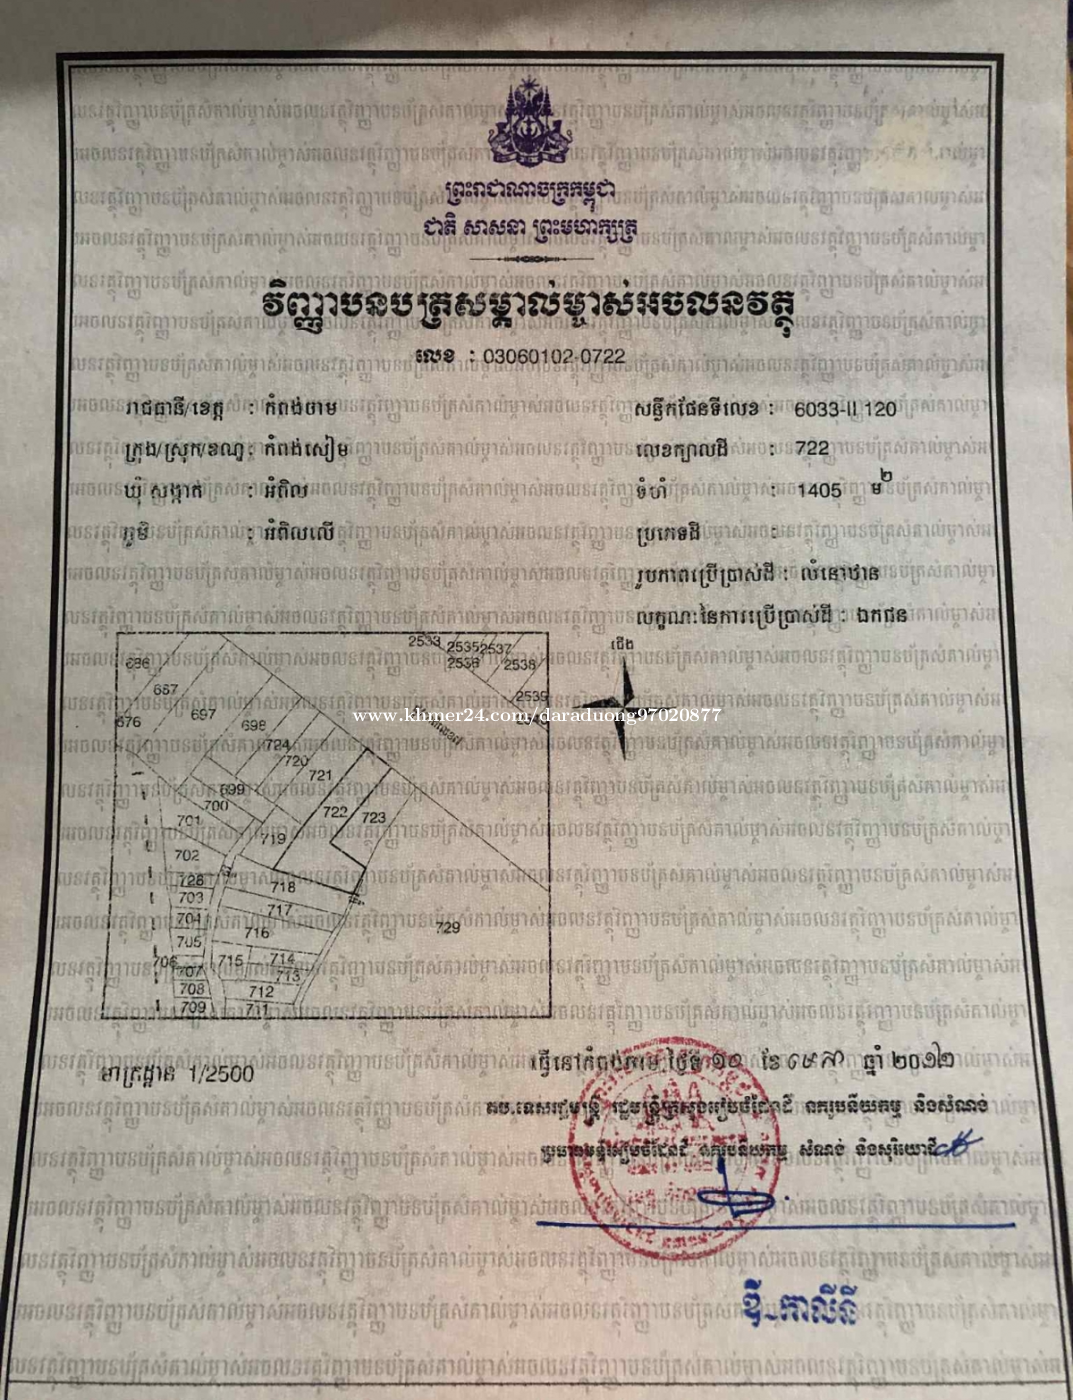 ព្រះរាជាណាចក្រកម្ពុជា
ជាតិ សាសនា ព្រះមហាក្សត្រ
វិញ្ញាបនបត្រសម្គាល់ម្ចាស់អចលនវត្ថុ
លេខ : 03060102-0722
រាជធានី/ខេត្ត : កំពង់ចាម
ក្រុង/ស្រុក/ខណ្ឌ : កំពង់សៀម
ឃុំ សង្កាត់ : អំពិល
ភូមិ : អំពិលលើ
សន្លឹកផែនទីលេខ : 6033-II 120
លេខក្បាលដី : 722
ទំហំ : 1405 ម២
ប្រភេទដី :
រូបភាពប្រើប្រាស់ដី : លំនៅឋាន
លក្ខណៈនៃការប្រើប្រាស់ដី : ឯកជន
ជើង
2533 2535 2537
686 2536 2538
667 2539
697
676 698
724
720
721
699
700 722 723
701
719
702
726 718
703 717
704 716 729
705
706 715 714
707 713
708 712
709 711
www.khmer24.com/daraduong97020877
មាត្រដ្ឋាន 1/2500
ធ្វើនៅកំពង់ចាម ថ្ងៃទី ១០ ខែ ឧសភា ឆ្នាំ ២០១២
តប.ទេសរដ្ឋមន្ត្រី រដ្ឋមន្ត្រីក្រសួងរៀបចំដែនដី នគរូបនីយកម្ម និងសំណង់
ប្រធានមន្ទីររៀបចំដែនដី នគរូបនីយកម្ម សំណង់ និងសុរិយោដី